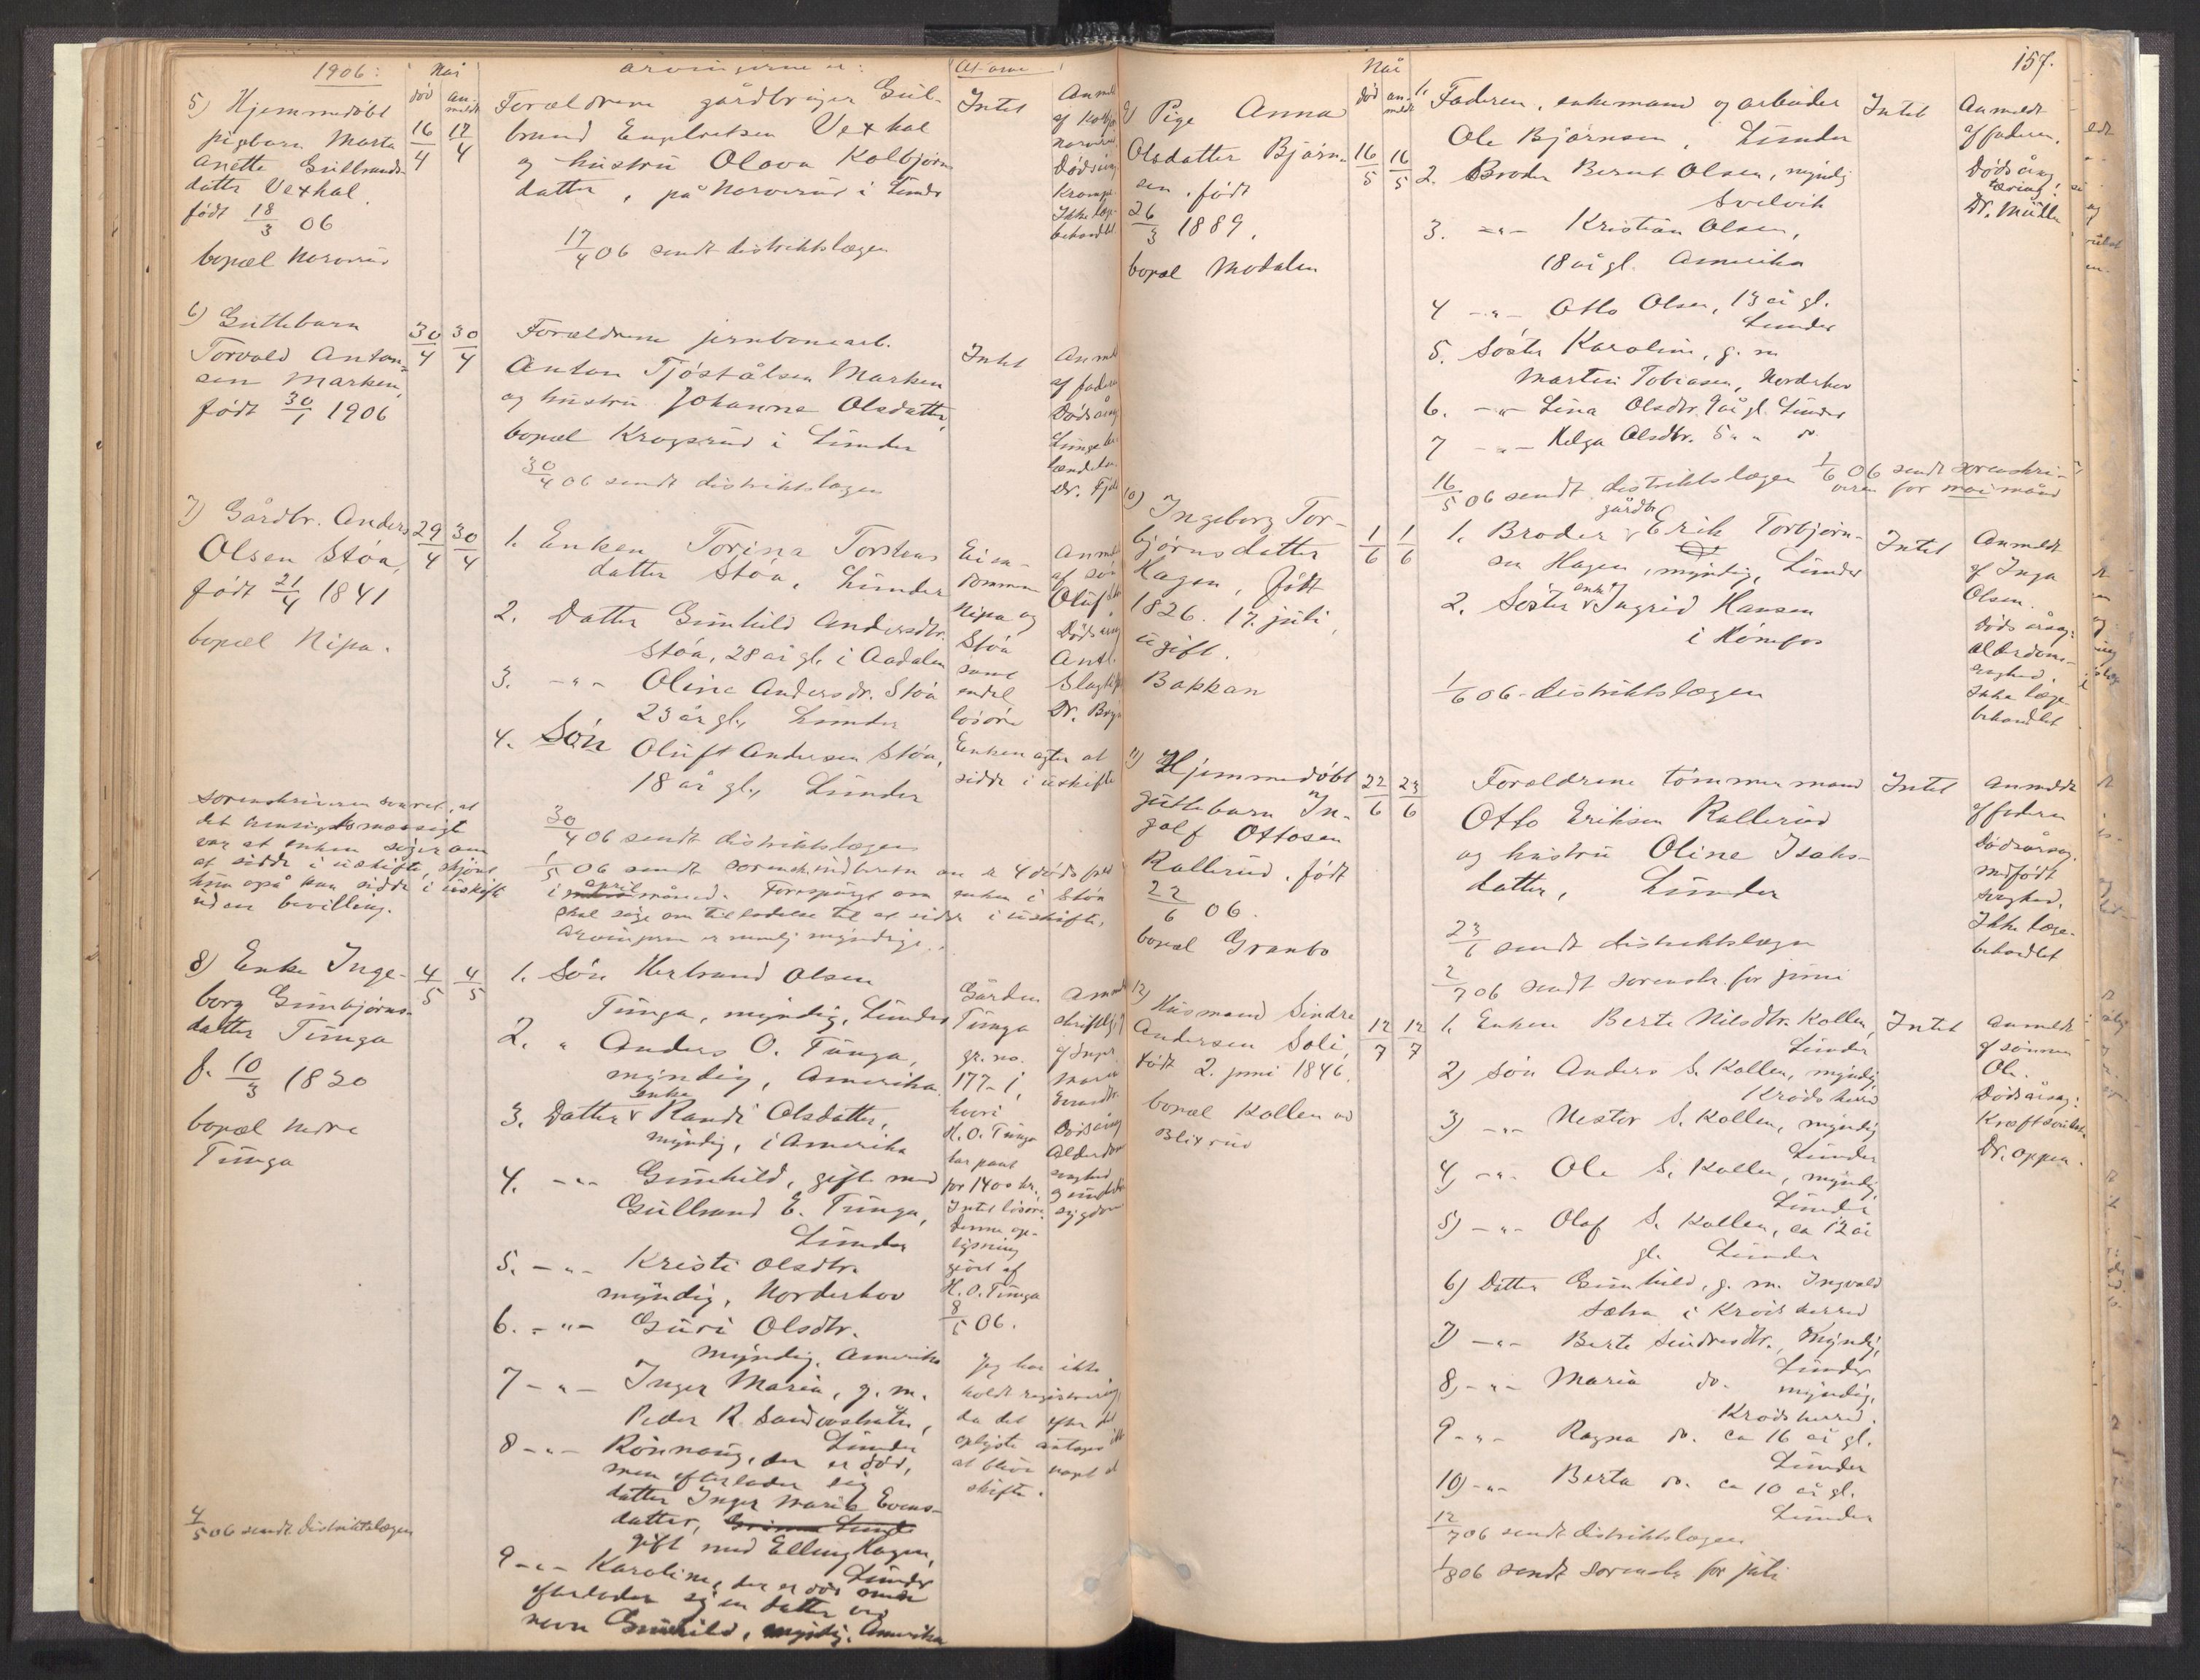 1906:
Når
død anmeldt
arvingerne er:
At arve
5) Hjemmedøbt
pigebarn Marta
Anette Gulbrands-
datter Vexhal
født 18/3 06
bopæl Narverud
16/4 17/4
Forældrene gårdbruger Gul-
brand Engebretsen Vexhal
og hustru Olava Kolbjørns-
datter, på Narverud i Lunder
17/4 06 sendt distriktslægen
Intet
Anmel
af
Dødsårsag
Krampe
Ikke læge
behandlet
6) Guttebarn
Torvald Anton-
sen Marken,
født 30/1 1906
30/4 30/4
Forældrene jernbanearb.
Anton Tjøstålsen Marken
og hustru Johanne Olsdatter,
bopæl Krogsrud i Lunder
30/4 06 sendt distriktslægen
Intet
Anmel
af fadere
Dødsårsag
Lungebe
tændelse
Dr. Fjeld
7) Gårdbr. Anders
Olsen Støa,
født 21/4 1841
bopæl Nipa.
29/4 30/4
1. Enken Torina Torstens
datter Støa, Lunder
2. Datter Gunhild Andersdtr.
Støa, 28 år gl. i Aadalen
3. -"- Oline Andersdr. Støa
23 år gl., Lunder
4. Søn Oluf Andersen Støa,
18 år gl., Lunder
Eien-
dommen
Nipa og
Støa
samt
endel
løsøre
Enken agter at
sidde i uskifte
Anmel
af søn
Oluf
Dødsårsag
Slag
Dr.
Sorenskriveren svaret, at
det hensigtsmæssigt
var at enken søger om
at sidde i uskifte, skjønt
hun også kan sidde i uskifte
uden bevilling.
30/4 06 sendt distriktslægen
1/5 06 sendt sorensk. indberetn. om 4 dødsfald
i april måned. Forespurgt om enken i Støa
skal søge om tilladelse til at sidde i uskifte,
Arvingerne er nemlig myndige.
8) Enke Inge-
borg Gunbjørns-
datter Tunga
f. 10/3 1820
bopæl nedre
Tunga
4/5 4/5
4/5 06 sendt distriktslægen
1. Søn Herbrand Olsen
Tunga, myndig, Lunder
2. " Anders O. Tunga,
myndig, Amerika.
3. Datter enke Randi Olsdatter,
myndig, i Amerika
4. -"- Gunhild, gift med
Gulbrand E. Tunga,
Lunder
5. -"- Kristi Olsdtr.
myndig, Norderhov
6. -"- Guri Olsdtr.
myndig, Amerika
7 -"- Inger Maria, g. m.
Peder R. Sandvashatn,
Lunder
8 -"- Rønnaug, der er død,
men efterlader sig
datter Inger Marie Evens-
datter,
gift med Elling Hagen,
Lunder
9 -"- Karoline, der er død men
efterlader sig en datter ved
navn Gunhild, myndig, Amerika
Gården
Tunga
gr. no.
177-1,
hvori
H. O. Tunga
har pant
for 1400 kr.
Intet løsøre
Denne op-
lysning
givet af
H. O. Tunga
8/5 06.
Jeg har ikke
holdt registrering,
da det efter det
oplyste antages ikke
at blive noget at
skifte.
Anmeldt
skriftlig
af Inger
Maria
Dødsårsag
Alderdom
svaghed
sygdom
157.
Når
død anmeldt
9) Pige Anna
Olsdatter Bjørn-
sen, født
26/3 1889,
bopæl Modalen
16/5 16/5
1. Faderen, enkemand og arbeider
Ole Bjørnsen, Lunder
2. Broder Bernt Olsen, myndig
Svelvik
3. -"- Kristian Olsen,
18 år gl. Amerika
4 -"- Otto Olsen, 13 år gl.
Lunder
5. Søster Karoline, g. m.
Martin Tobiasen, Norderhov
6. -"- Lina Olsdtr. 9 år gl. Lunder
7 -"- Helga Olsdtr. 5 " " do.
16/5 06 sendt distriktslægen
1/6 06 sendt sorenskri-
veren for mai måned
Intet
Anmeldt
af faderen.
Dødsårsag,
tæring.
Dr. Müller
10) Ingeborg Tor-
bjørnsdatter
Hagen, født
1826. 17. juli,
ugift.
Bakkan
1/6 1/6
1. Broder gårdbr. Erik Torbjørn-
sen Hagen, myndig, Lunder
2. Søster enke Ingrid Hansen
i Hønefos
1/6 06 - distriktslægen
Intet
Anmeldt
af Inga
Olsen.
Dødsårsag:
alderdoms-
svaghed.
Ikke læge
behandlet
11) Hjemmedøbt
guttebarn In-
golf Ottosen
Rallerud, født
22/6 06.
bopæl Granbo
22/6 23/6
Forældrene tømmermand
Otto Eriksen Rallerud
og hustru Oline Isaks-
datter, Lunder
23/6 sendt distriktslægen
2/7 06 sendt sorenskr. for juni
Intet
Anmeldt
af faderen
Dødsårsag.
medfødt
svaghed,
Ikke læge-
behandlet
12) Husmand Sindre
Andersen Soli,
født 2. juni 1846.
bopæl Kollen
Blixrud
12/7 12/7
1. Enken Berte Nilsdtr. Kollen,
Lunder
2) Søn Anders S. Kollen, myndig,
Krødsherred
3) -"- Nestor S. Kollen, myndig
Lunder
4) -"- Ole S. Kollen, myndig,
Lunder
5) -"- Olaf S. Kollen, ca 12 år
gl. Lunder
6) Datter Gunhild, g. m. Ingvald
Sætra i Krødsherred
7) -"- Berte Sindresdtr., Myndig,
Lunder
8) -"- Maria do. myndig,
Krødsherred.
9 -"- Ragna do. ca 16 år gl.
Lunder
10) -"- Berta do. ca 10 år gl.
Lunder
12/7 06 sendt distriktslægen
1/8 06 sendt sorenskr. for juli
Intet
Anmeldt
af sønnen
Ole.
Dødsårsag:
Kræftsvulst
Dr. Oppen.